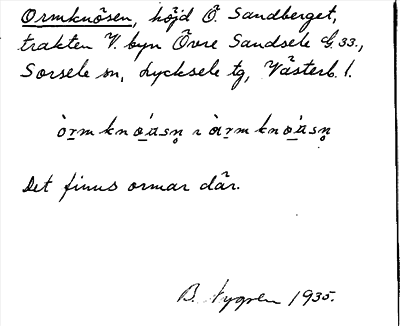 Ormknösen, höjd Ö. Sandberget,
trakten V. byn Övre Sandsele G. 33.,
Sorsele sn, Lycksele tg, Västerb. l.
Det finns ormar där.
B. Nygren 1935.